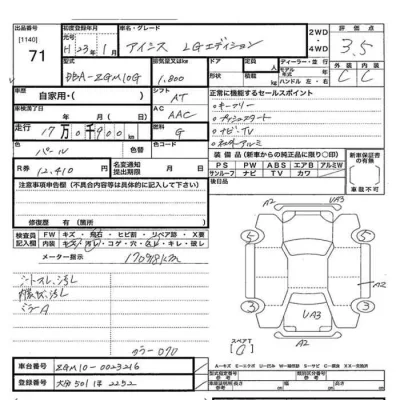 出品番号
[1140]
71
初度登録年月
H 23年 1月
車名・グレード
アイシス LGエディション
2WD
・
4WD
評価点
3.5
型式
DBA-ZGM10G
排気量又はkW
1,800
ドア
形状
定員
人
積載
kg
ディーラー・並行
モデル
年式
ハンドル 左・右
外装
内装
C
C
車歴
自家用・(
)
シフト
AT
車検満了日
年 月 日
AC
AAC
走行
17万 0千900
燃料
G
色
パール
色コード
R券
12,410 円
名変通知
提出期限
月 日
正常に機能するセールスポイント
・キーフリー
・プッシュスタート
・ナビ・TV
・社外アルミ
装備品(新車からの純正品に限り○印)
PS
PW
ABS
エアB
アルミW
サンルーフ
ナビ
TV
カワ
新車保証書
の有無
有
車載不可
後日品
注意事項申告欄(不具合内容等は具体的に記入して下さい)
修復歴 有(箇所
)
検査員
記入欄
FW
キズ・飛石・ヒビ割・リペア跡・X要
内装
キズ・汚レ・コゲ・穴・スレ・キレ・破レ
メーター指示
170918km
シートスレ、汚レ
ミラーA
カラー070
A2
UA3
A2
UA3
A2
スペアT
A-キズ
車台番号
ZGM10-0023216
登録番号
大分 501 は 2252
型式指定番号
類別区分番号